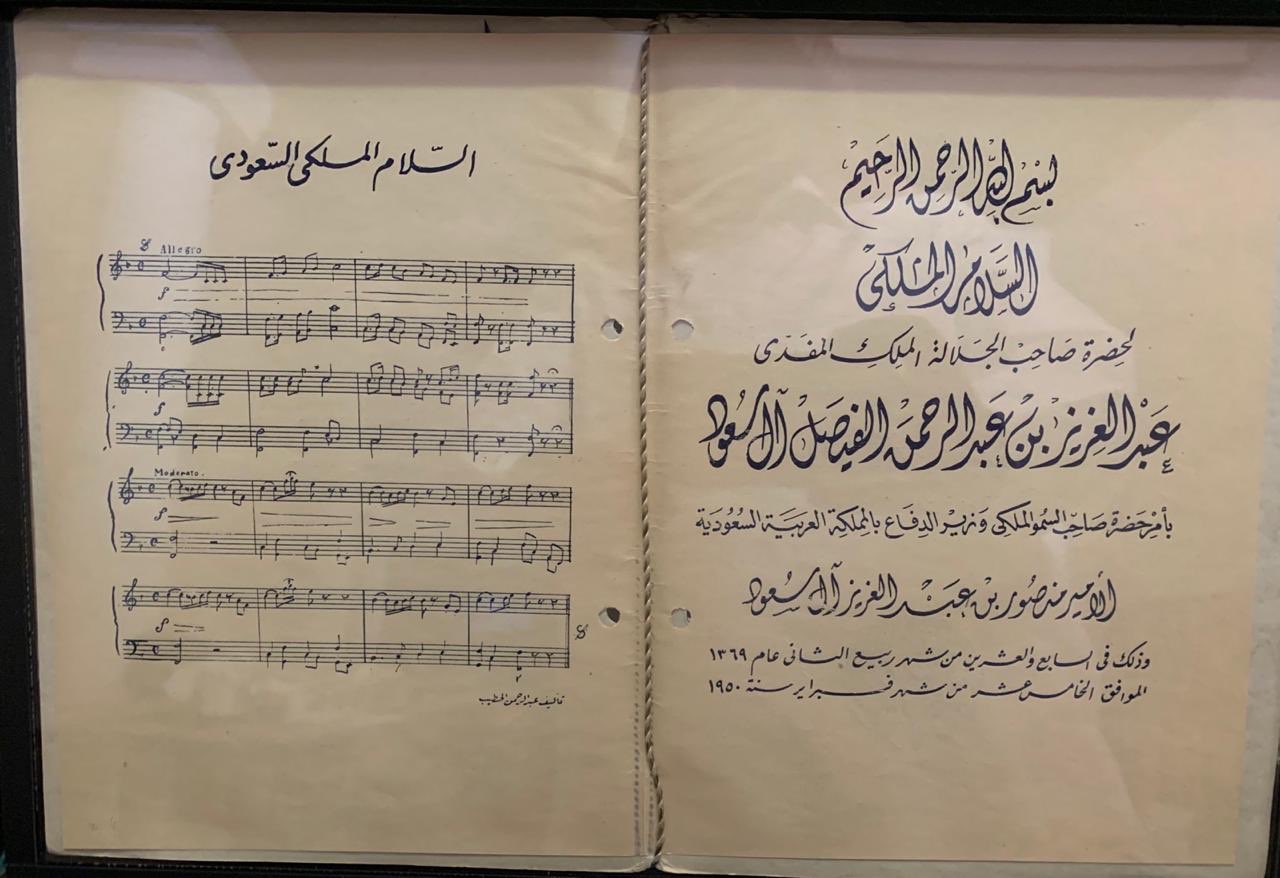 بسم الله الرحمن الرحيم
السلام الملكي
لحضرة صاحب الجلالة الملك المفدى
عبد العزيز بن عبد الرحمن الفيصل آل سعود
بأمر حضرة صاحب السمو الملكي وزير الدفاع بالمملكة العربية السعودية
الأمير منصور بن عبد العزيز آل سعود
وذلك في السابع والعشرين من شهر ربيع الثاني عام ١٣٦٩
الموافق الخامس عشر من شهر فبراير سنة ١٩٥٠
السّلام الملكي السّعودي
Allegro
f
f
Moderato.
f
f
تأليف عبد الرحمن الخطيب